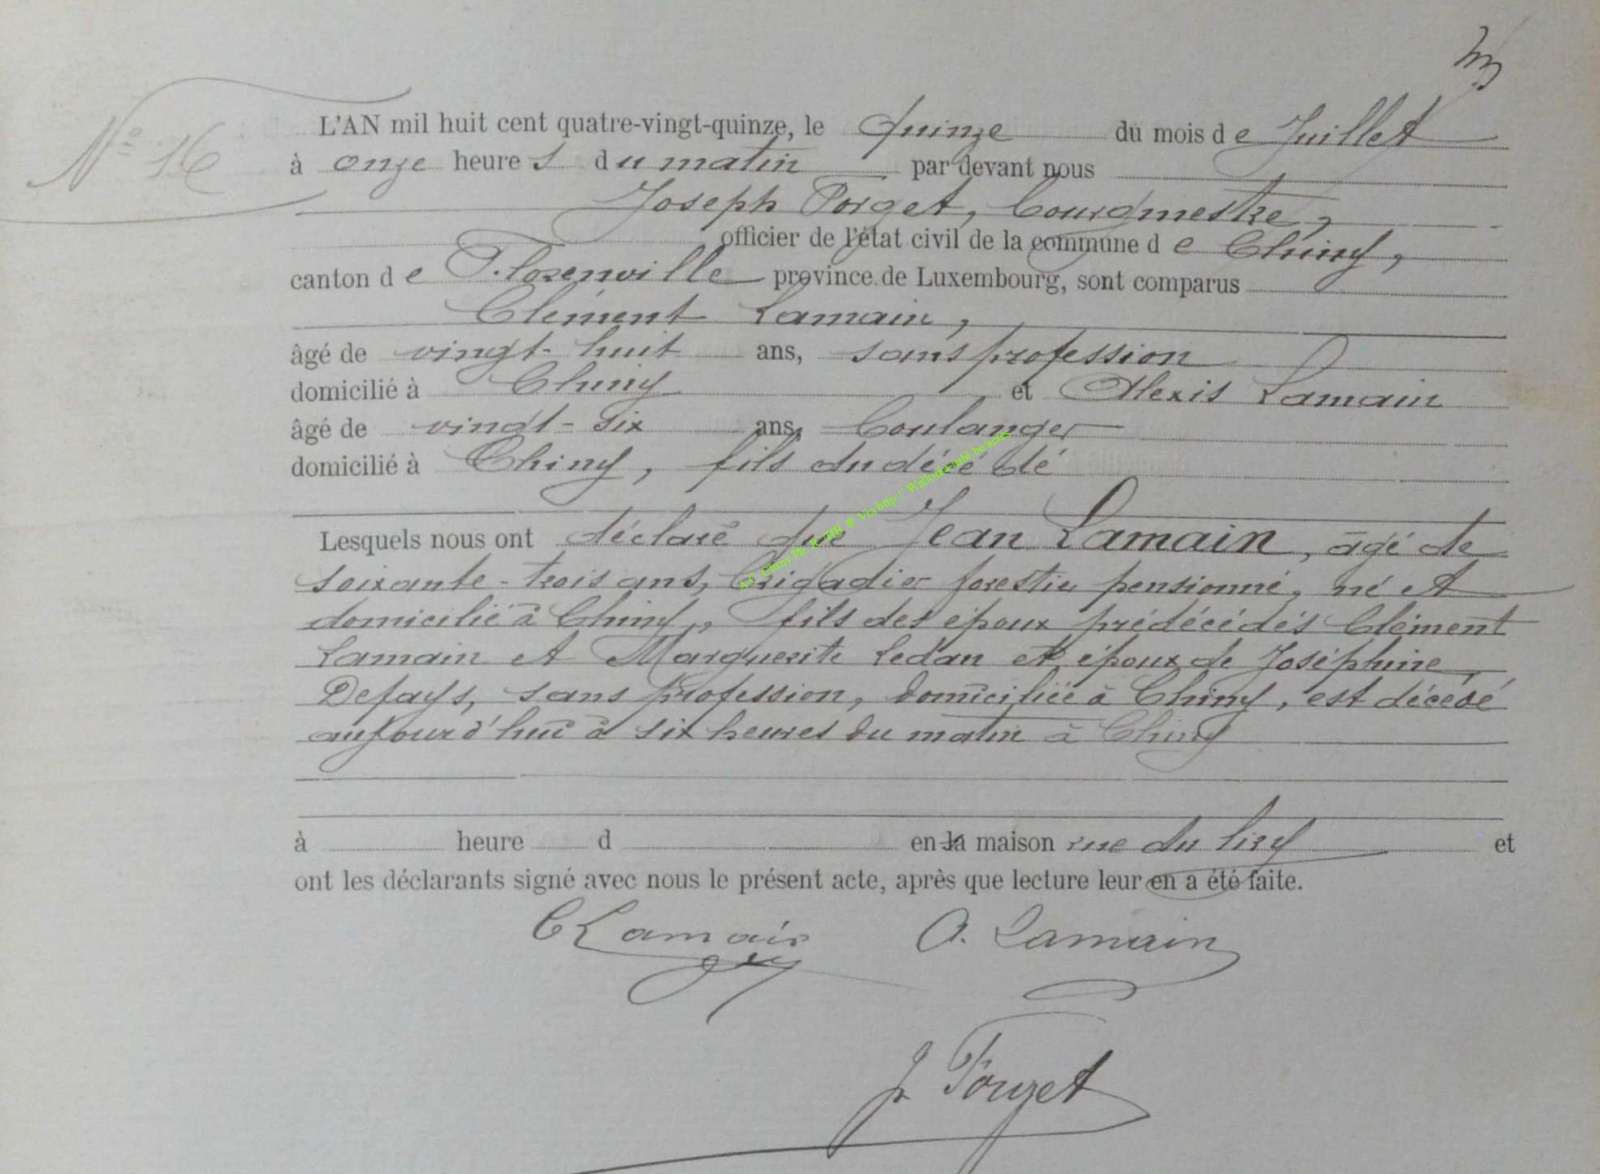 Nº 16
L'AN mil huit cent quatre-vingt-quinze, le quinze du mois de Juillet
à onze heures du matin par devant nous
Joseph Forget, bourgmestre,
officier de l'état civil de la commune de Chiny,
canton de Florenville province de Luxembourg, sont comparus
Clément Lamain,
âgé de vingt-huit ans, sans profession
domicilié à Chiny et Alexis Lamain
âgé de vingt-six ans, boulanger
domicilié à Chiny, fils du décédé
Lesquels nous ont déclaré que Jean Lamain, âgé de
soixante-trois ans, brigadier forestier pensionné, né et
domicilié à Chiny, fils des époux prédécédés Clément
Lamain et Marguerite Ledan et époux de Joséphine
Defays, sans profession, domiciliée à Chiny, est décédé
aujourd'hui à six heures du matin à Chiny
à heure d en la maison rue du et
ont les déclarants signé avec nous le présent acte, après que lecture leur en a été faite.
C Lamain A. Lamain
J. Forget